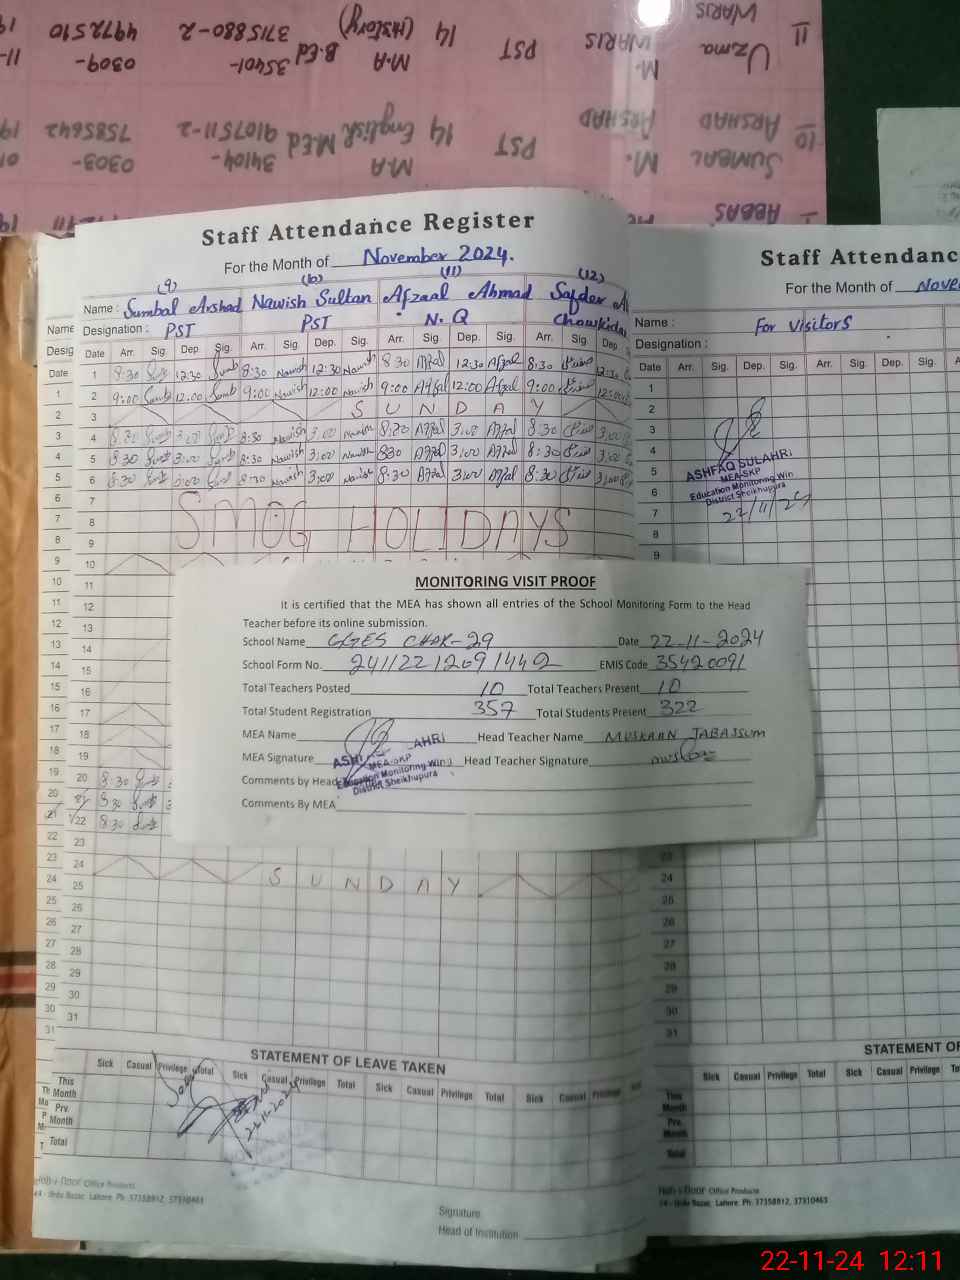 II
UZMA WARIS
M. WARIS
PST
14
M.A (History)
B.Ed
35401-3715880-2
0309-4972510
10
SUMBAL ARSHAD
M. ARSHAD
PST
14
M.A English
M.Ed
34104-9107511-2
0303-7585642
ABBAS
Staff Attendance Register
For the Month of November 2024.
(9) (10) (11) (12)
Name : Sumbal Arshad Nawish Sultan Afzaal Ahmad Safder
Designation : PST PST N.Q Chowkidar
Date Arr. Sig. Dep. Sig. Arr. Sig. Dep. Sig. Arr. Sig. Dep. Sig. Arr. Sig. Dep.
1 8:30 Sumb 12:30 Sumb 8:30 Nawish 12:30 Nawish 8:30 Afzal 12:30 Afzal 8:30 12:30
2 9:00 Sumb 12:00 Sumb 9:00 Nawish 12:00 Nawish 9:00 Afzal 12:00 Afzal 9:00 12:00
3 SUNDAY
4 8:30 Sumb 3:00 Sumb 8:30 Nawish 3:00 Nawish 8:30 Afzal 3:00 Afzal 8:30 3:00
5 8:30 Sumb 3:00 Sumb 8:30 Nawish 3:00 Nawish 8:30 Afzal 3:00 Afzal 8:30 3:00
6 8:30 Sumb 3:00 Sumb 8:30 Nawish 3:00 Nawish 8:30 Afzal 3:00 Afzal 8:30 3:00
7
8 SMOG HOLIDAYS
9
10
11
12
13
14
15
16
17
18
19
20 8:30
21 8:30
22 8:30
23
24 SUNDAY
25
26
27
28
29
30
31
STATEMENT OF LEAVE TAKEN
Sick Casual Privilege Total Sick Casual Privilege Total Sick Casual Privilege Total Sick Casual Privilege
This Month
Prv. Month
Total
Office Products
44 - Urdu Bazar, Lahore. Ph: 37358912, 37310461
Signature
Head of Institution
MONITORING VISIT PROOF
It is certified that the MEA has shown all entries of the School Monitoring Form to the Head
Teacher before its online submission.
School Name GGES CHAK-29 Date 22-11-2024
School Form No. 241122120914402 EMIS Code 35420091
Total Teachers Posted 10 Total Teachers Present 10
Total Student Registration 357 Total Students Present 322
MEA Name Head Teacher Name MUSKAAN TABASSUM
MEA Signature Head Teacher Signature
Comments by Head
Comments By MEA
AHRI
MEA-SKP
Education Monitoring Wing
District Sheikhupura
Staff Attendanc
For the Month of Nove
Name : For Visitors
Designation :
Date Arr. Sig. Dep. Sig. Arr. Sig. Dep. Sig. Arr.
1
2
3
4
5
6
7
8
9
ASHFAQ SULAHRI
MEA-SKP
Education Monitoring Win
District Sheikhupura
22/11/24
24
25
26
27
28
29
30
31
STATEMENT OF
Sick Casual Privilege Total Sick Casual Privilege
This Month
Prv. Month
Total
Office Products
Urdu Bazar, Lahore. Ph: 37358912, 37310461
22-11-24 12:11